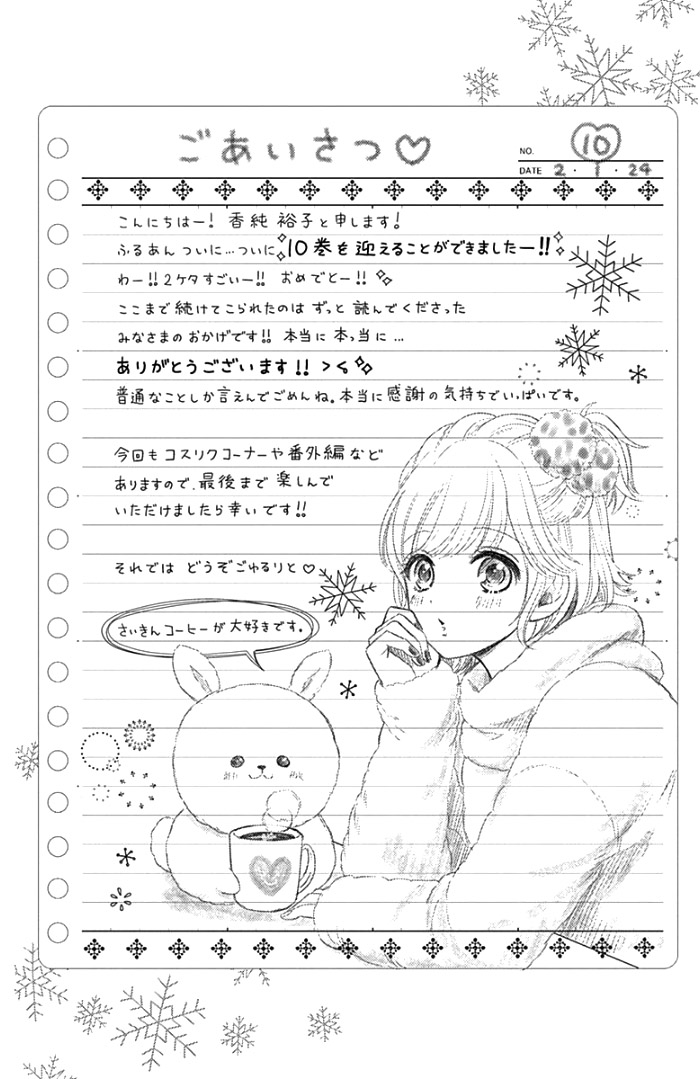 ごあいさつ♡
NO. 10
DATE 2・1・24
こんにちはー! 香純 裕子と申します!
ふるあん ついに…ついに10巻を迎えることができましたー!!
わー!!2ケタすごいー!! おめでとー!!
ここまで続けてこられたのは ずっと 読んでくださった
みなさまのおかげです!! 本当に 本っ当に …
ありがとうございます!! ><
普通なことしか言えんでごめんね。本当に感謝の気持ちでいっぱいです。
今回も コスリクコーナーや番外編など
ありますので、最後まで 楽しんで
いただけましたら幸いです!!
それでは どうぞごゆるりと♡
さいきんコーヒーが大好きです。